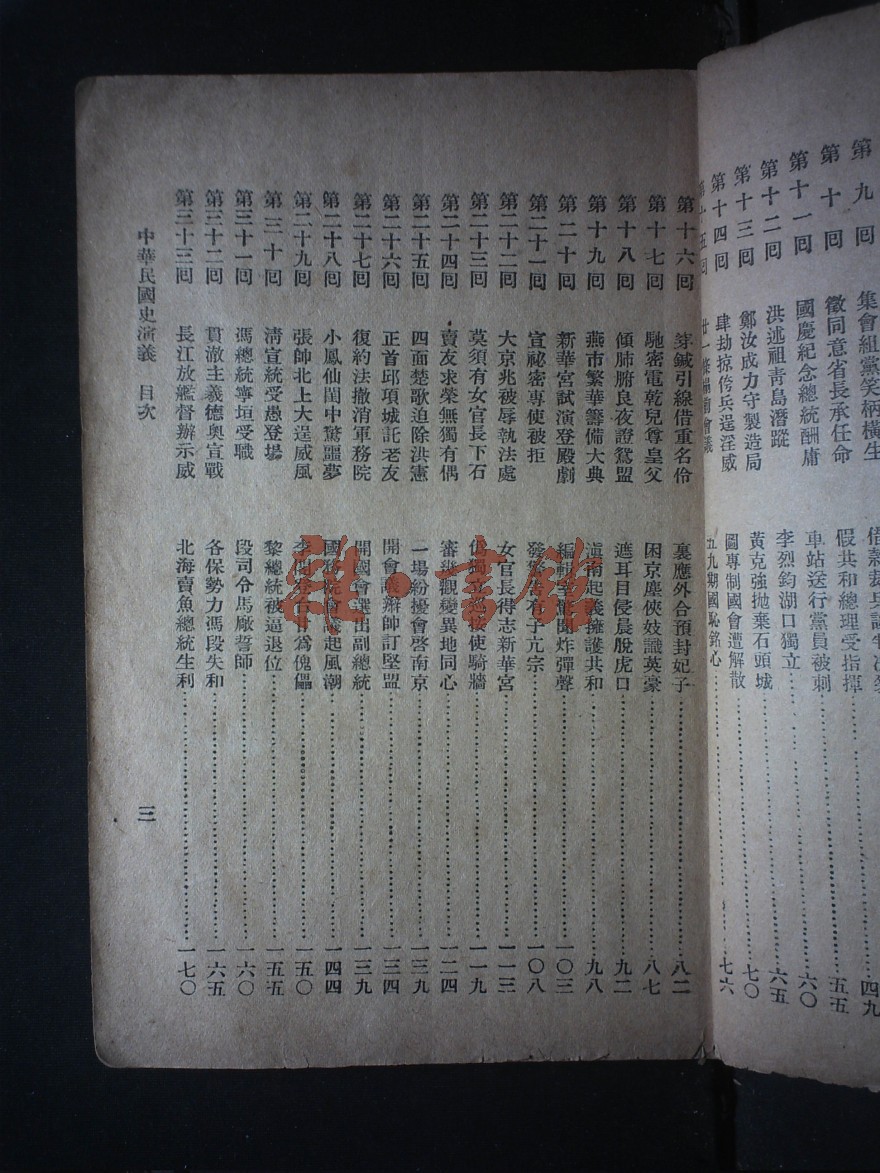 第九回 集會組黨笑柄橫生 四九
第十回 徵同意省長承任命 假共和總理受指揮 五五
第十一回 國慶紀念總統酬庸 車站送行黨員被刺 六〇
第十二回 洪述祖青島潛蹤 李烈鈞湖口獨立 六五
第十三回 鄭汝成力守製造局 黃克強拋棄石頭城 七〇
第十四回 肆劫掠侉兵逞淫威 圖專制國會遭解散 七六
五回 廿一條 會議 五九期國恥銘心
第十六回 穿鍼引線借重名伶 裏應外合預封妃子 八二
第十七回 馳密電乾兒尊皇父 困京塵俠妓識英豪 八七
第十八回 傾肺腑良夜證鴛盟 遮耳目侵晨脫虎口 九二
第十九回 燕市繁華籌備大典 滇南起義擁護共和 九八
第二十回 新華宮試演登殿劇 編輯 炸彈聲 一〇三
第二十一回 宣祕密專使被拒 發警告 子亢宗 一〇八
第二十二回 大京兆被辱執法處 女官長得志新華宮 一一三
第二十三回 莫須有女官長下石 獨立 按使騎牆 一一九
第二十四回 賣友求榮無獨有偶 審 觀變異地同心 一二四
第二十五回 四面楚歌迫除洪憲 一場紛擾會啓南京 一三九
第二十六回 正首邱項城託老友 開會議辮帥訂堅盟 一三四
第二十七回 復約法撤消軍務院 開國會選出副總統 一三九
第二十八回 小鳳仙閨中驚噩夢 國務院會議起風潮 一四四
第二十九回 張帥北上大逞威風 李 登台甘爲傀儡 一五〇
第三十回 清宣統受愚登場 黎總統被逼退位 一五五
第三十一回 馮總統寧垣受職 段司令馬廠誓師 一六〇
第三十二回 貫澈主義德奧宣戰 各保勢力馮段失和 一六五
第三十三回 長江放艦督辦示威 北海賣魚總統生利 一七〇
中華民國史演義 目次 三
雜·書館